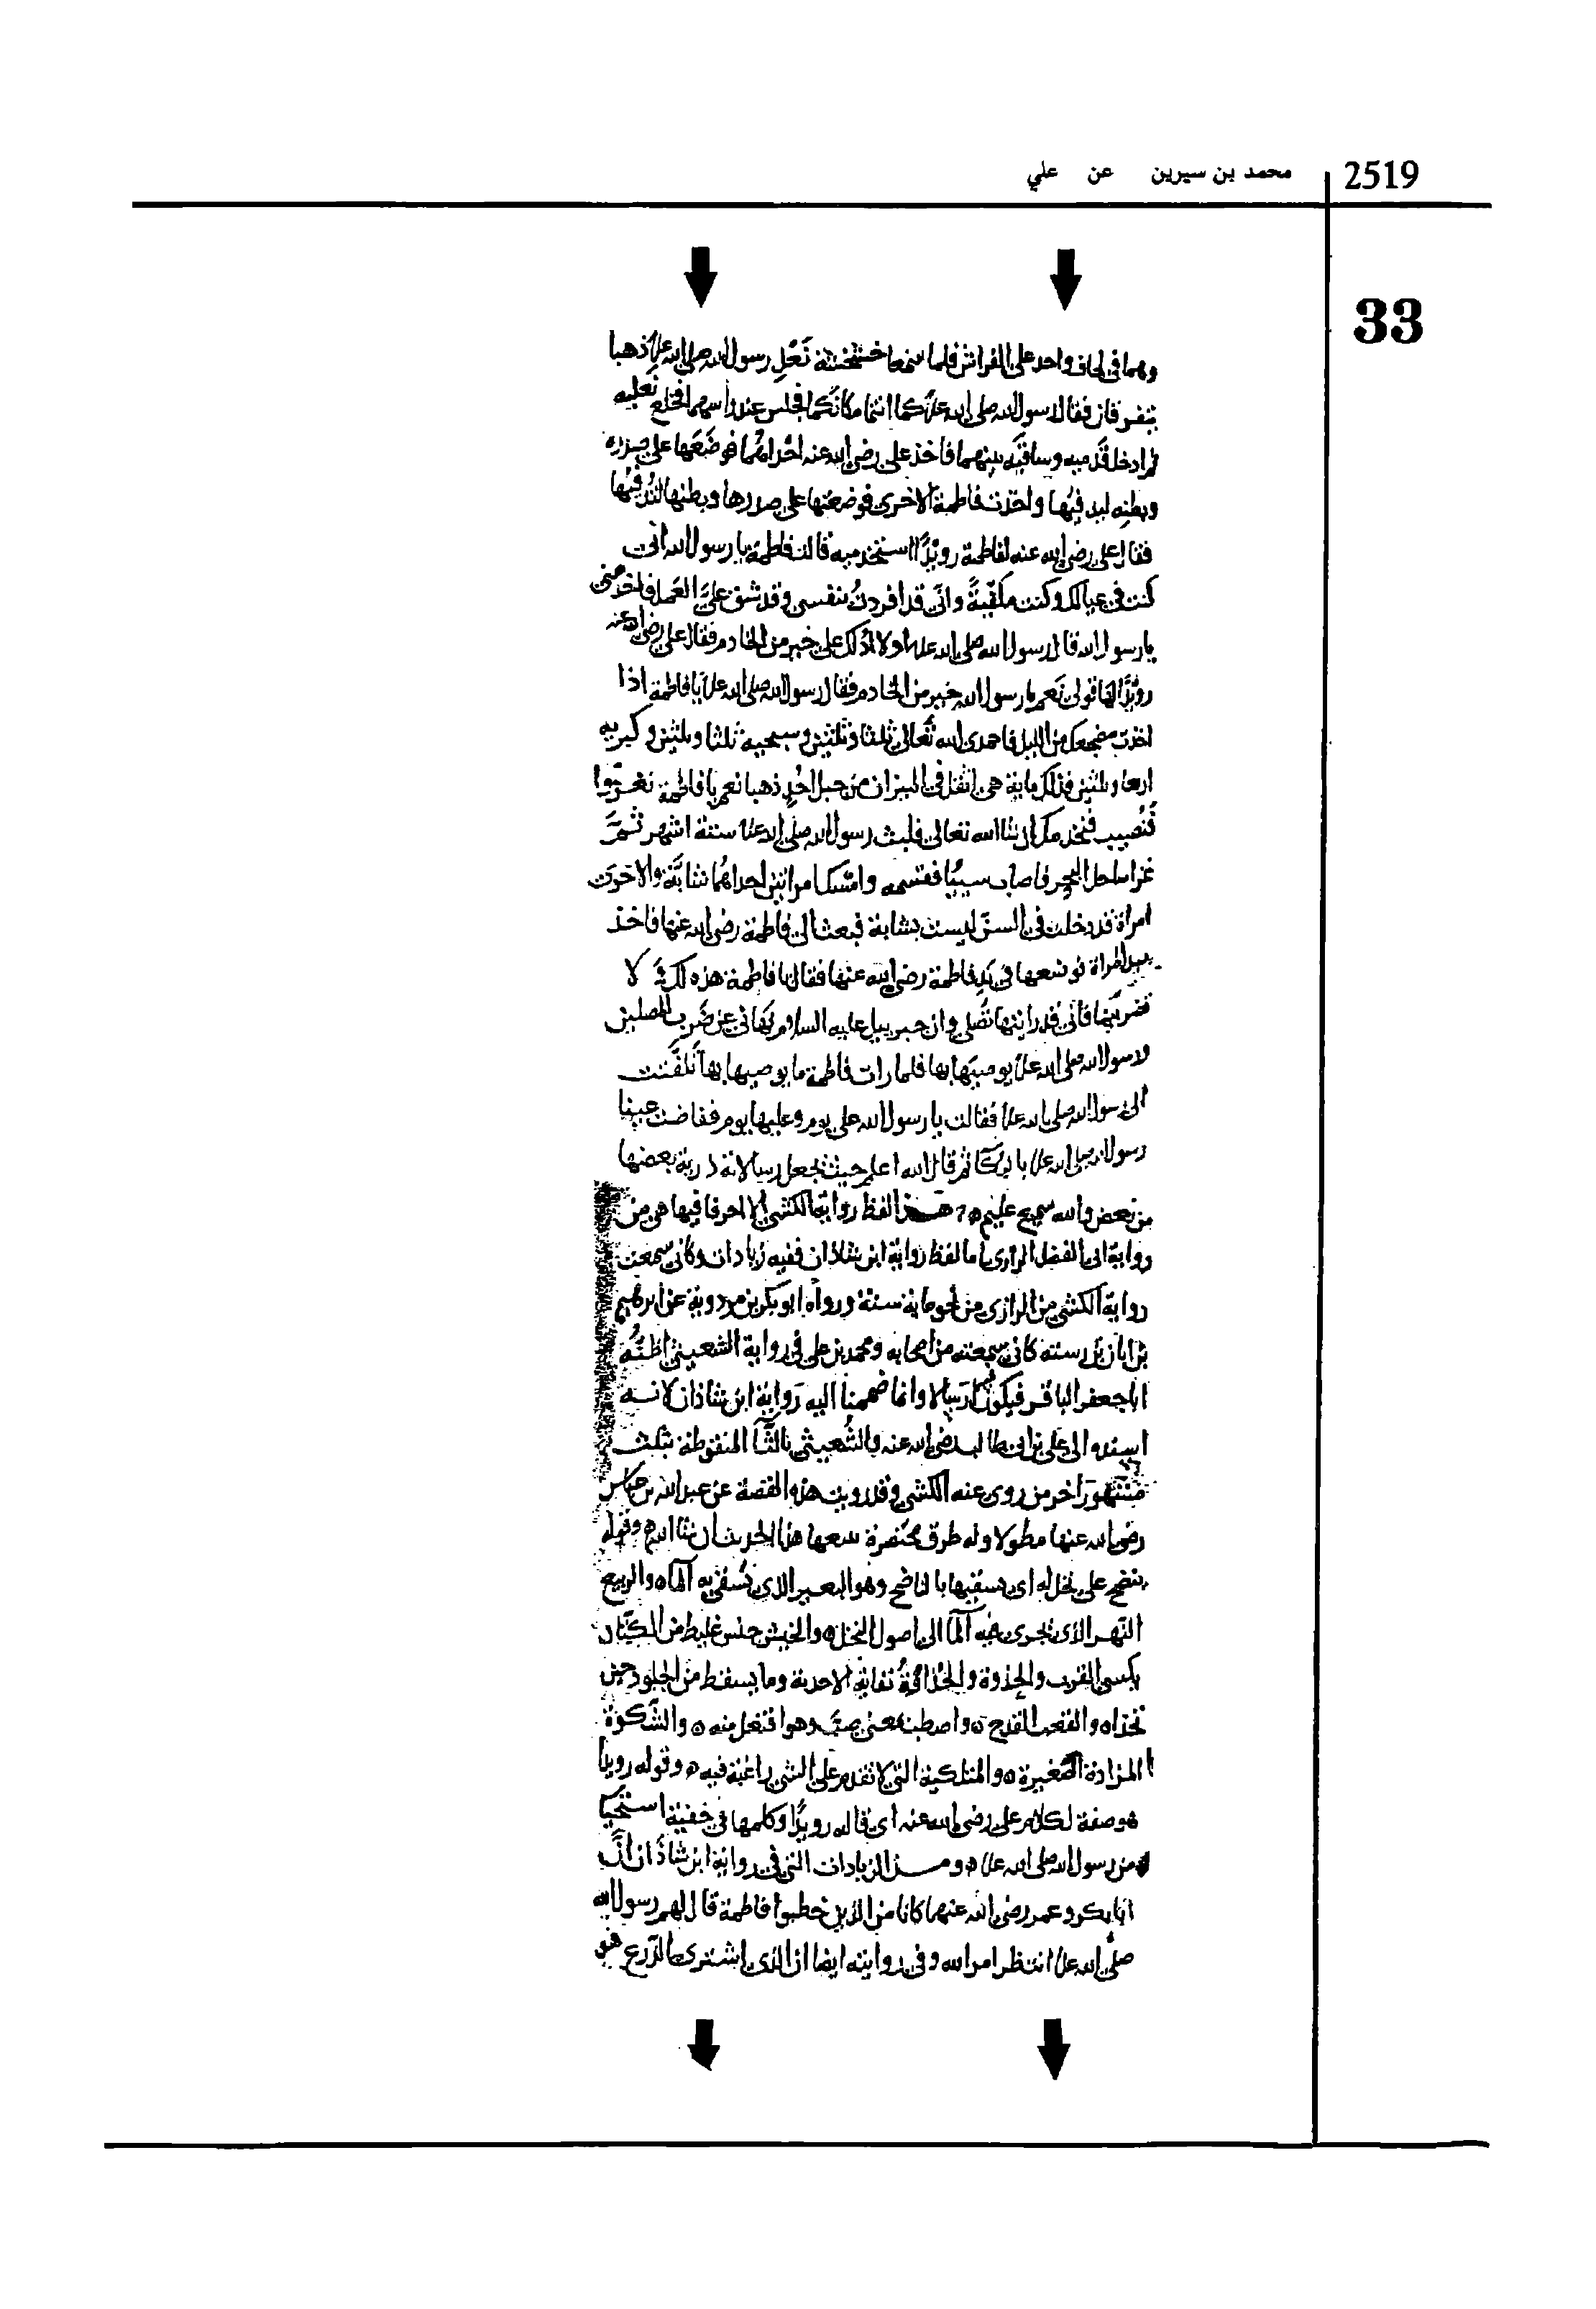 2519
محمد بن سيرين عن علي
33
وهما في لحاف واحد على الفراش فلما سمعا خشخشة نَعْلِ رسول الله صلى الله علا ذهبا
يتفرقان فقال رسول الله صلى الله علا كما انتما مكانكما فجلس عند راسهما فخلع نعليه
ثم ادخل قدميه وساقيه بينهما فاخذ على رضى الله عنه احداهما فوضعها على صدره
وبطنه ليدفيها واخذت فاطمة الاخرى فوضعتها على صدرها وبطنها لتدفيها
فقال على رضى الله عنه لفاطمة رويدًا استخدميه قالت فاطمة يا رسول الله انى
كنت في عيالك وكنت مكفية وانى قد افردت بنفسى وقد شق علىَّ العمل فاخدمنى
يا رسول الله قال رسول الله صلى الله علا اولا ادلك على خير من الخادم فقال على رضى الله عنه
رويدًا لها قولى نعم يا رسول الله خير من الخادم فقال رسول الله صلى الله علا يا فاطمة اذا
اخذت مضجعك من الليل فاحمدى الله تعالى ثلثا وثلثين وسبحيه ثلثا وثلثين وكبريه
اربعا وثلثين فذلك ماية هى اثقل في الميزان من جبل احُدٍ ذهبا نعم يا فاطمة نغزوا
فنصيب فنخدمك ان شا الله تعالى فلبث رسول الله صلى الله علا ستة اشهر ثم
غزا ساحل البحر فاصاب سبيًا فقسمه وامسك امراتين احداهما شابة والاخرى
امراة قد دخلت في السن ليست بشابة فبعث الى فاطمة رضى الله عنها فاخذ
بيد المراة فوضعها في يد فاطمة رضى الله عنها فقال يا فاطمة هذه لك لا
تضربيها فانى قد رايتها تصلى وان جبرييل عليه السلام نهانى عن ضرب المصلين
ورسول الله صلى الله علا يوصيها بها فلما رات فاطمة ما يوصيها بها التفتت
الى رسول الله صلى الله علا فقالت يا رسول الله على يوم وعليها يوم ففاضت عينا
رسول الله صلى الله علا بالبكا ثم قال الله اعلم حيث يجعل رسالاته ذرية بعضها
من بعض والله سميع عليم هذا لفظ رواية الكشى الا احرفا فيها هى من
رواية ابى الفضل الرازى اما لفظ رواية ابن شاذان ففيه زيادات وكانى سمعت
رواية الكشى من الرازى من نحو ماية سنة ورواه ابو بكر بن مردويه عن ابرهيم
بن ابان بن رسته كانى سمعته من اصحابه ومحمد بن على في رواية الشعيثى اظنُّه
ابا جعفر الباقر فيكون ارسالا وانما ضممنا اليه رواية ابن شاذان لانه
اسنده الى على بن ابى طالب رضى الله عنه والشُعيثى بالثا المنقوطة بثلث
اخر من روى عنه الكشى وقد رويت هذه القصة عن عبد الله بن عباس
رضى الله عنها مطولا وله طرق مختصرة سمعها هذا الحديث ان شا الله وقوله
ينضح على نخل له اى يسقيها بالناضح وهو البعير الذى يُسْقى به الماء والربيع
النهر الذى يجرى فيه الما الى اصول النخل والخيش جنس غليظ من الكتان
يكسى القرب والجذوة والحُذافة نفاية الاحذية وما يسقط من الجلود حين
تحذاه والقعب القدح واصطب بمعنى صبَّ وهو افتعل منه والشكوة
المزادة الصغيرة والمتلكية التى لا تقدم على الشى راغبة فيه وقوله رويدا
هو صفة لكلام على رضى الله عنه اى قاله رويدًا وكلمها في خفية استحيا
من رسول الله صلى الله علا ومن الزيادات التى في رواية ابن شاذان انَّ
ابا بكر وعمر رضى الله عنهما كانا من الذين خطبوا فاطمة قال لهم رسول الله
صلى الله علا انتظر امر الله وفي روايته ايضا ان الذى اشترى الدرع هو